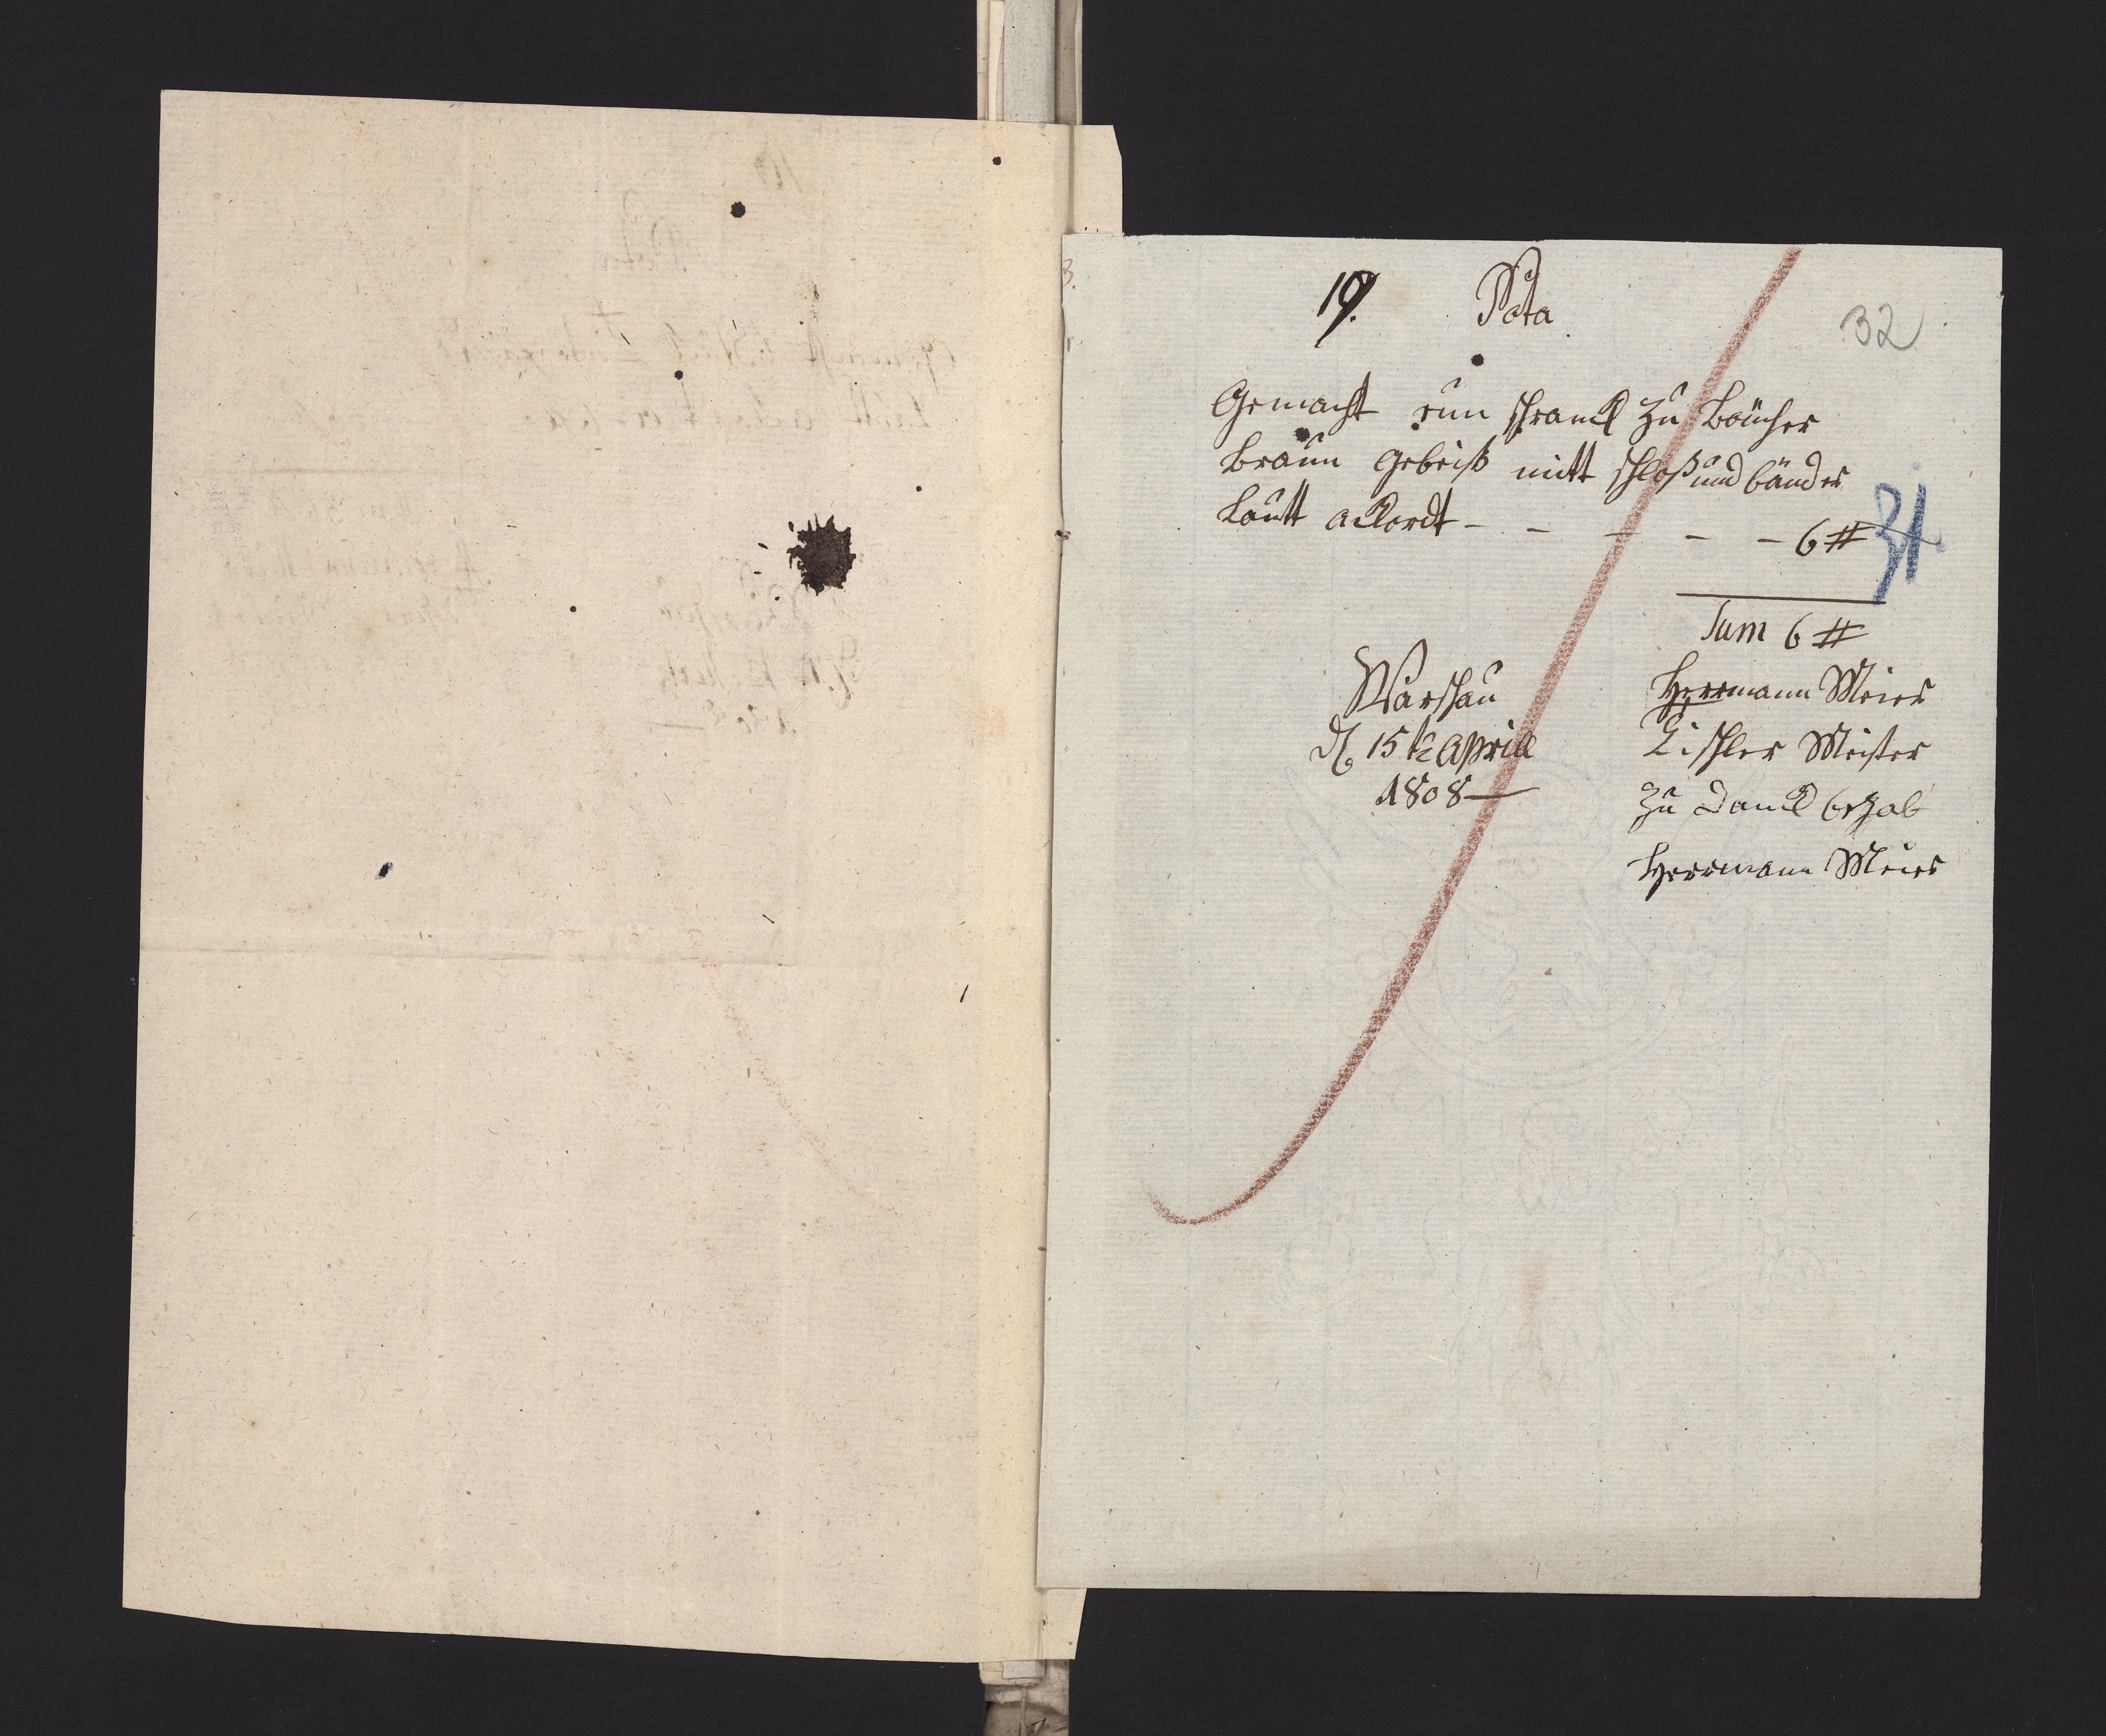 19.
Nota
32
Gemacht ein schranck zu Bücher
braun gebeiß mitt schloß und bänder
Lautt acKordt - - - - - 6 #
31
Sum 6 #
Warschau
d 15 te Aprill
1808
Herrmann Meier
Tischler Meister
zu danck bezalt
Herrmann Meier